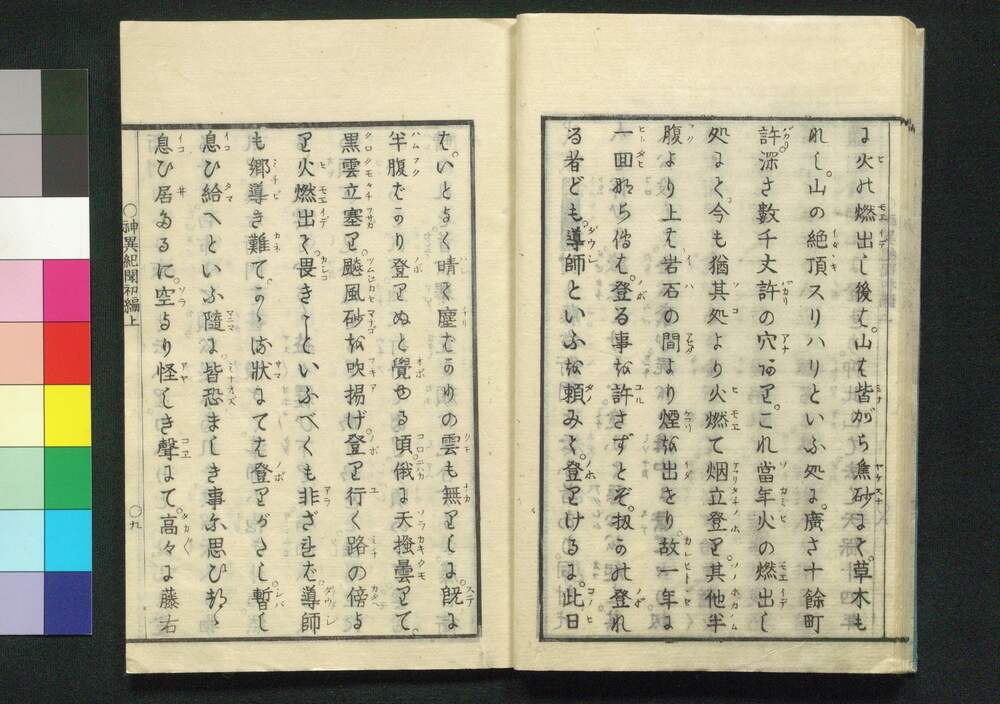 に火の燃出し後は。山は皆がら焦砂にて。草木も
れし。山の絶頂スリハリといふ処に。廣さ十餘町
許。深さ數千丈許の穴あり。これ當年火の燃出し
処にて。今も猶其処より火燃て烟立登り。其他半
腹より上は岩石の間より煙を出せり。故一年に
一回ならでは。登る事を許さずとぞ。扨かの登れ
る者ども。導師といふを頼みて。登りけるに。此日
は。いとよく晴て塵ばかりの雲も無りしに。既に
半腹ばかり登りぬと覺ゆる頃。俄に天搔曇りて。
黒雲立塞り。飈風砂を吹揚げ。登り行く路の傍よ
り火燃出て。畏きことといふべくも非ざれば。導師
も郷導き難て。かゝる狀にては登りがたし。暫し
息ひ給へといふ隨に。皆恐ましき事に思ひ都ゝ
息ひ居たるに。空より怪しき聲にて。高々に藤右
○神異紀聞初編上
○九